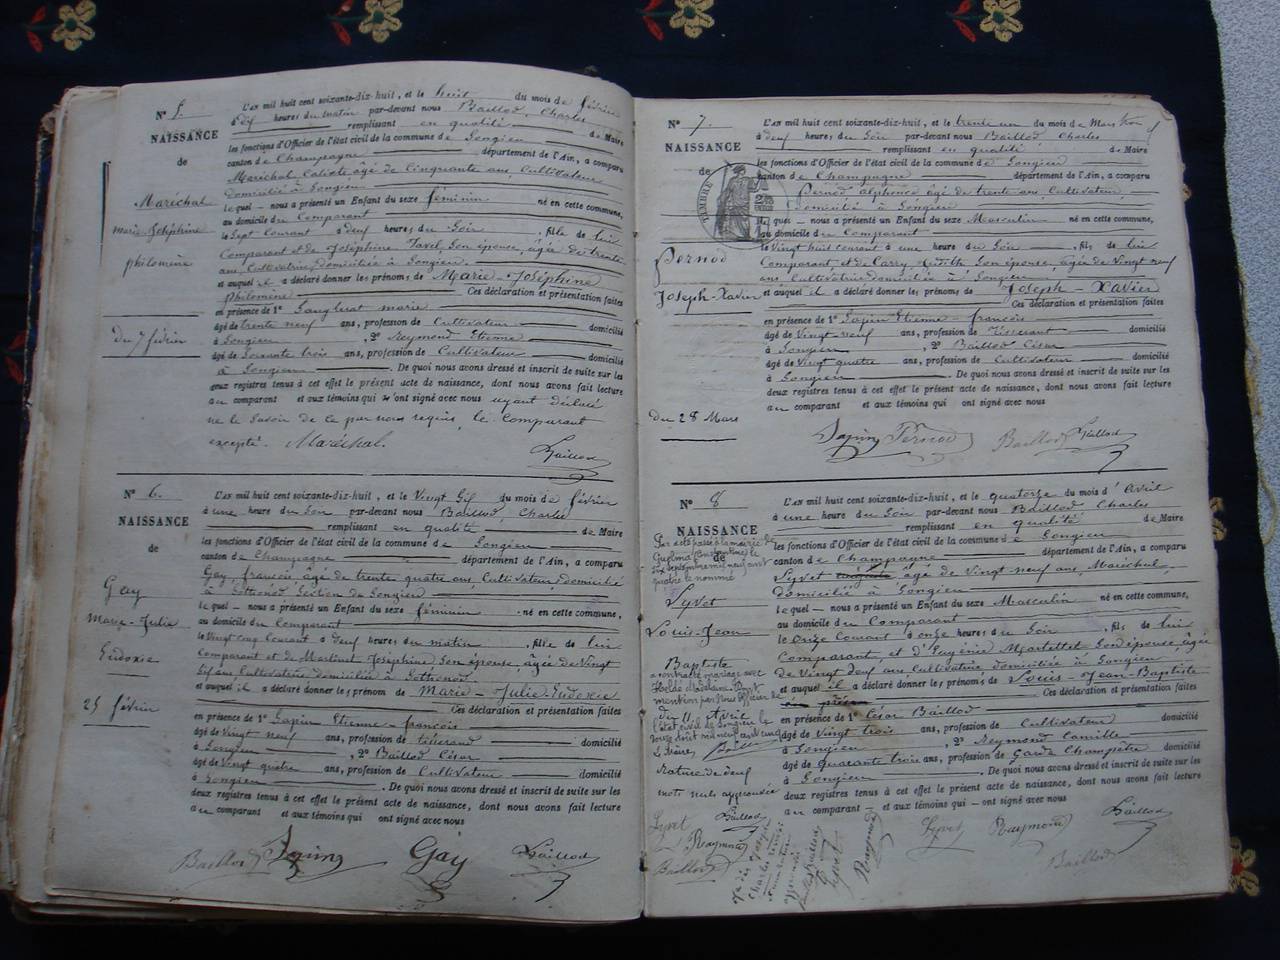 N° 5.
NAISSANCE
de
Maréchal
marie Joséphine
philomène
du 7 février
L'AN mil huit cent soixante-dix-huit, et le huit du mois de février
à dix heures du matin par-devant nous Baillod, Charles
remplissant en qualité de Maire
les fonctions d'Officier de l'état civil de la commune de Songieu
canton de Champagne département de l'Ain, a comparu
Maréchal Calixte, âgé de Cinquante ans, Cultivateur
domicilié à Songieu
lequel nous a présenté un Enfant du sexe féminin né en cette commune,
au domicile du Comparant
le Sept courant à deux heures du Soir, fille de lui
Comparant et de Joséphine Tavel, Son épouse, âgée de trente
ans, Cultivatrice, domiciliée à Songieu.
et auquel il a déclaré donner les prénoms de Marie-Joséphine
philomène Ces déclaration et présentation faites
en présence de 1° marie
âgé de trente neuf ans, profession de Cultivateur domicilié
à Songieu, 2° Reymond Etienne
âgé de Soixante trois ans, profession de Cultivateur domicilié
à Songieu De quoi nous avons dressé et inscrit de suite sur les
deux registres tenus à cet effet le présent acte de naissance, dont nous avons fait lecture
au comparant et aux témoins qui n'ont signé avec nous ayant déclaré
ne le Savoir de ce par nous requis, le Comparant
excepté. Maréchal.
Baillod
N° 6.
NAISSANCE
de
Gay
Marie-Julie
Eudoxie
25 février
L'AN mil huit cent soixante-dix-huit, et le Vingt Six du mois de février
à une heure du Soir par-devant nous Baillod, Charles
remplissant en qualité de Maire
les fonctions d'Officier de l'état civil de la commune de Songieu
canton de Champagne département de l'Ain, a comparu
Gay, françois, âgé de trente quatre ans, Cultivateur, domicilié
à Sothonod Section de Songieu
lequel nous a présenté un Enfant du sexe féminin né en cette commune,
au domicile du Comparant
le Vingt cinq Courant à deux heures du matin, fille de lui
Comparant et de Martinet Joséphine Son épouse, âgée de Vingt
Six ans, Cultivatrice domiciliée à Sothonod
et auquel il a déclaré donner les prénom de Marie-Julie-Eudoxie
Ces déclaration et présentation faites
en présence de 1° Lapin Etienne-françois
âgé de Vingt neuf ans, profession de tisserand domicilié
à Songieu, 2° Baillod César
âgé de Vingt quatre ans, profession de Cultivateur domicilié
à Songieu. De quoi nous avons dressé et inscrit de suite sur les
deux registres tenus à cet effet le présent acte de naissance, dont nous avons fait lecture
au comparant et aux témoins qui ont signé avec nous
Baillod Lapin Gay Baillod
N° 7.
NAISSANCE
de
TIMBRE
Pernod
Joseph-Xavier
du 28 Mars
L'AN mil huit cent soixante-dix-huit, et le trente un du mois de Mars
à deux heures du Soir par-devant nous Baillod Charles
remplissant en qualité de Maire
les fonctions d'Officier de l'état civil de la commune de Songieu
canton de Champagne département de l'Ain, a comparu
Pernod alphonse âgé de trente ans Cultivateur
domicilié à Songieu
lequel nous a présenté un Enfant du sexe Masculin né en cette commune,
au domicile du Comparant
le Vingt huit courant à une heure du Soir, fils de lui
Comparant et de Carry, Son épouse, âgée de Vingt neuf
ans Cultivatrice domiciliée à Songieu
et auquel il a déclaré donner les prénoms de Joseph-Xavier
Ces déclaration et présentation faites
en présence de 1° Lapin Etienne-françois
âgé de Vingt-neuf ans, profession de Tisserant domicilié
à Songieu, 2° Baillod César
âgé de Vingt quatre ans, profession de Cultivateur domicilié
à Songieu. De quoi nous avons dressé et inscrit de suite sur les
deux registres tenus à cet effet le présent acte de naissance, dont nous avons fait lecture
au comparant et aux témoins qui ont signé avec nous
Lapin Pernod Baillod Baillod
N° 8
NAISSANCE
de
Lyvet
Louis-Jean
Baptiste
a contracté mariage avec
du 11 Avril
l'état civil de Songieu le
Le Maire,
Rature de deux
mots nuls approuvée
Lyvet Baillod
Raymond
Baillod
L'AN mil huit cent soixante-dix-huit, et le quatorze du mois d'Avril
à une heure du Soir par-devant nous Baillod Charles
remplissant en qualité de Maire
les fonctions d'Officier de l'état civil de la commune de Songieu
canton de Champagne département de l'Ain, a comparu
Lyvet âgé de Vingt neuf ans, Maréchal,
domicilié à Songieu
lequel nous a présenté un Enfant du sexe Masculin né en cette commune,
au domicile du Comparant
le Onze Courant à onze heures du Soir, fils de lui
Comparant, et d'Eugénie Martettet Son épouse, âgée
de Vingt Deux ans, Cultivatrice domiciliée à Songieu
et auquel il a déclaré donner les prénoms de Louis-Jean-Baptiste
Ces déclaration et présentation faites
en présence de 1° César Baillod
âgé de Vingt trois ans, profession de Cultivateur domicilié
à Songieu, 2° Reymond Camille
âgé de Quarante trois ans, profession de Garde Champêtre domicilié
à Songieu. De quoi nous avons dressé et inscrit de suite sur les
deux registres tenus à cet effet le présent acte de naissance, dont nous avons fait lecture
au comparant et aux témoins qui ont signé avec nous
Lyvet Raymond Baillod
Baillod